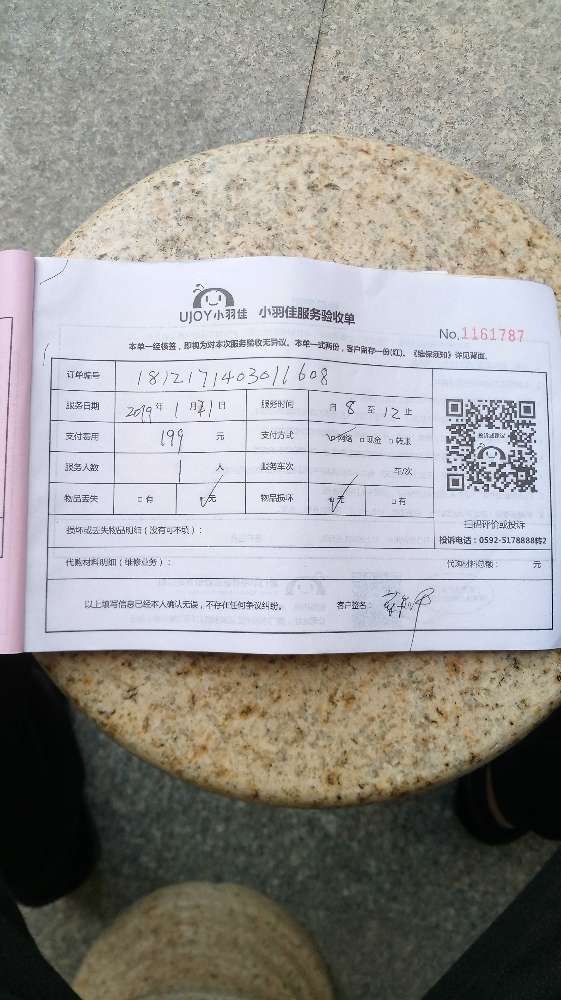 UJOY小羽佳 小羽佳服务验收单
No.1161787
本单一经核签，即视为对本次服务验收无异议。本单一式两份，客户留存一份(红)。《维保须知》详见背面。
订单编号 1812171403011608
服务日期 2019年1月21日 服务时间 自8至12止
支付费用 199元 支付方式 网络 现金 转账
服务人数 1人 服务车次 车/次
物品丢失 有 无 物品损坏 无 有
扫码评价或投诉
投诉电话：0592-5178888转2
损坏或丢失物品明细（没有可不填）：
代购材料明细（维修业务）： 代购材料总额： 元
以上填写信息已经本人确认无误，不存在任何争议纠纷。 客户签名：